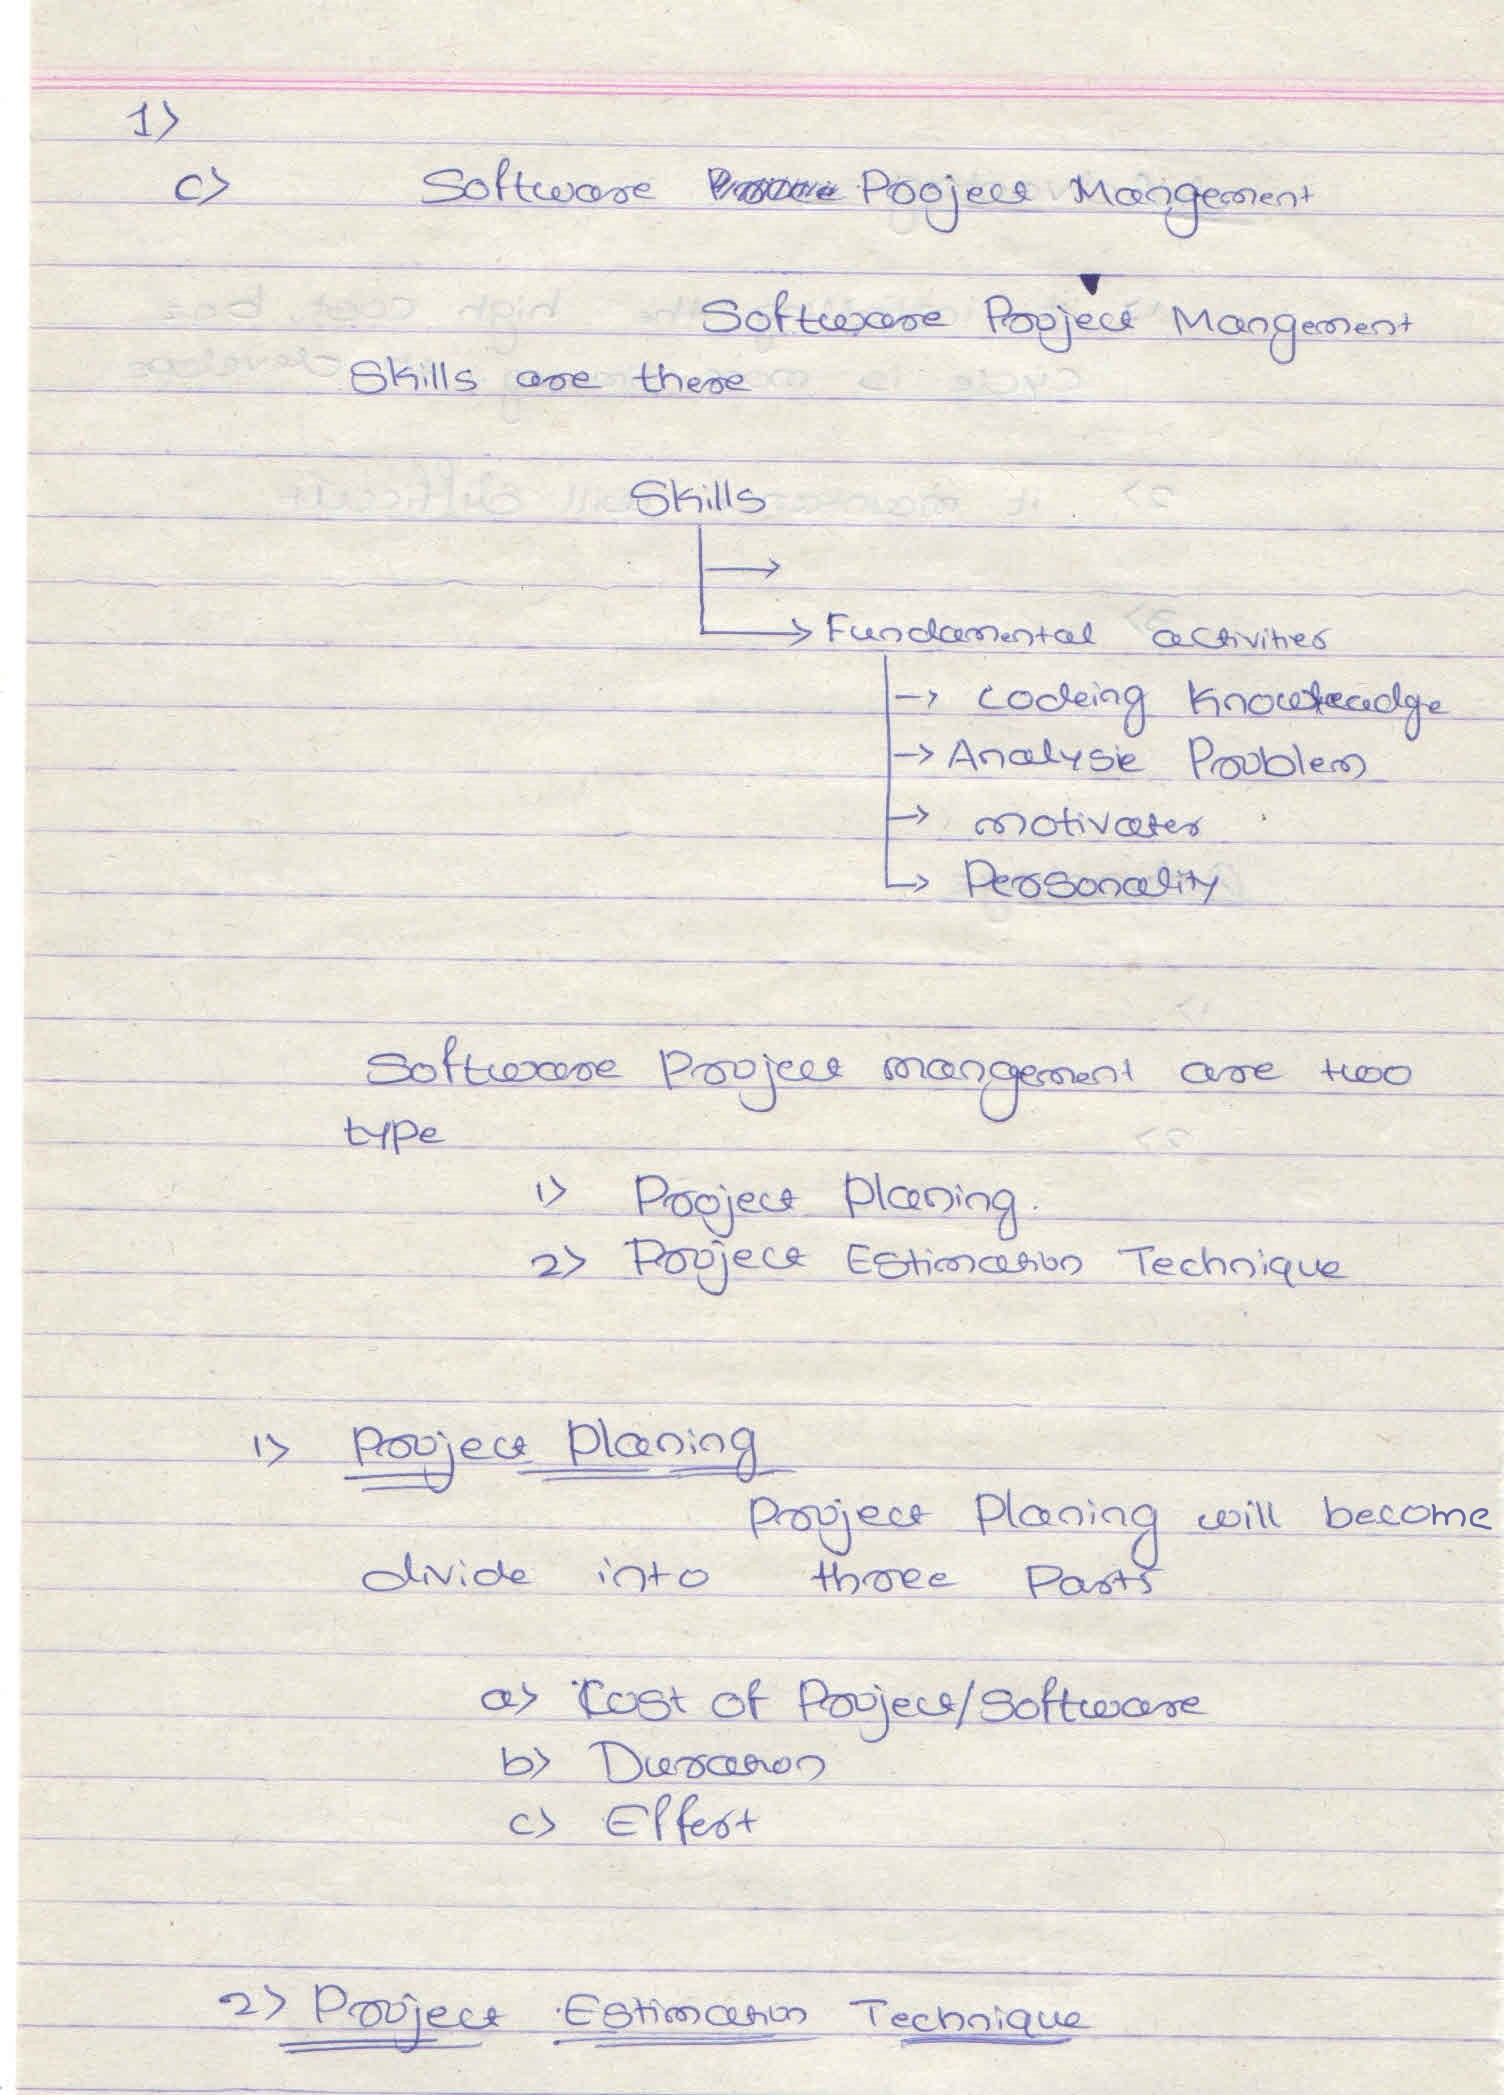 1>
c> Software Project Mangement
Software Project Mangement
Skills are there
Skills
→
→ Fundamental activities
→ Codeing Knowleadge
→ Analysie Problem
→ motivater
→ Personality
Software Project mangement are two
type
1> Project Planing.
2> Project Estimation Technique
1> Project Planing
Project Planing will become
divide into three Parts
a> Cost of Project/Software
b> Duration
c> Effert
2> Project Estimation Technique